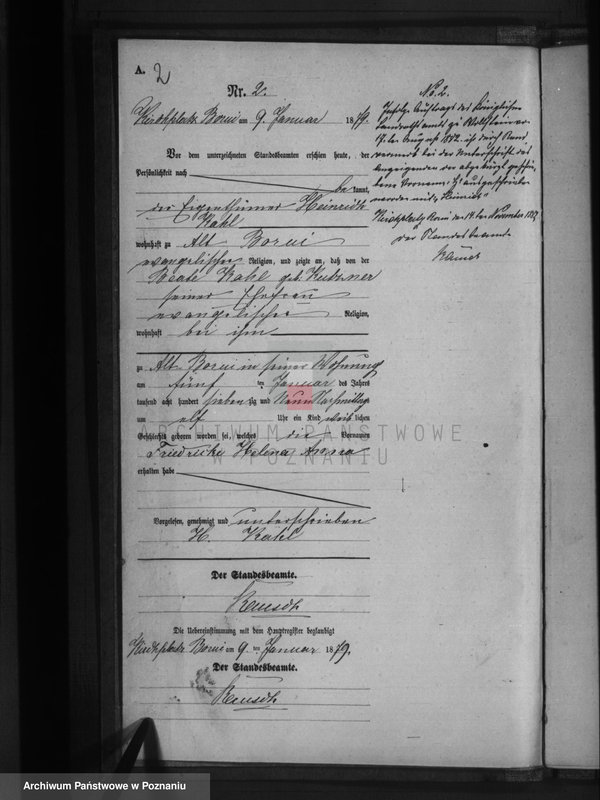 A. 2
Nr. 2.
Kirchplatz Borui am 9. Januar 1879.
Vor dem unterzeichneten Standesbeamten erschien heute, der
Persönlichkeit nach
be kannt,
der Eigenthümer Heinrich
Kahl
wohnhaft zu Alt Borui
evangelischer Religion, und zeigte an, daß von der
Beate Kahl geb.
seiner Ehefrau
evangelischer Religion,
wohnhaft bei ihm
zu Alt Borui in seiner Wohnung
am fünf ten Januar des Jahres
tausend acht hundert sieben zig und Neun Vormittag
um elf Uhr ein Kind weib lichen
Geschlechts geboren worden sei, welches die Vornamen
Friedericke Helena Anna
erhalten habe
Vorgelesen, genehmigt und unterschrieben
H. Kahl
Der Standesbeamte.
Die Uebereinstimmung mit dem Hauptregister beglaubigt
Kirchplatz Borui am 9. ten Januar 1879.
Der Standesbeamte.
No. 2.
Infolge Auftrags des Königlichen
Landrathsamts zu Wollstein v.
17ten August 1882 ist durch Rand
vermerk bei der Unterschrift des
Anzeigenden der abgekürzt geschrie
bene Vorname "H" ausgeschrieben
worden mit "Heinrich"
Kirchplatz Borui den 14ten November 1882
Der Standesbeamte
ARCHIWUM PAŃSTWOWE
W POZNANIU
Archiwum Państwowe w Poznaniu